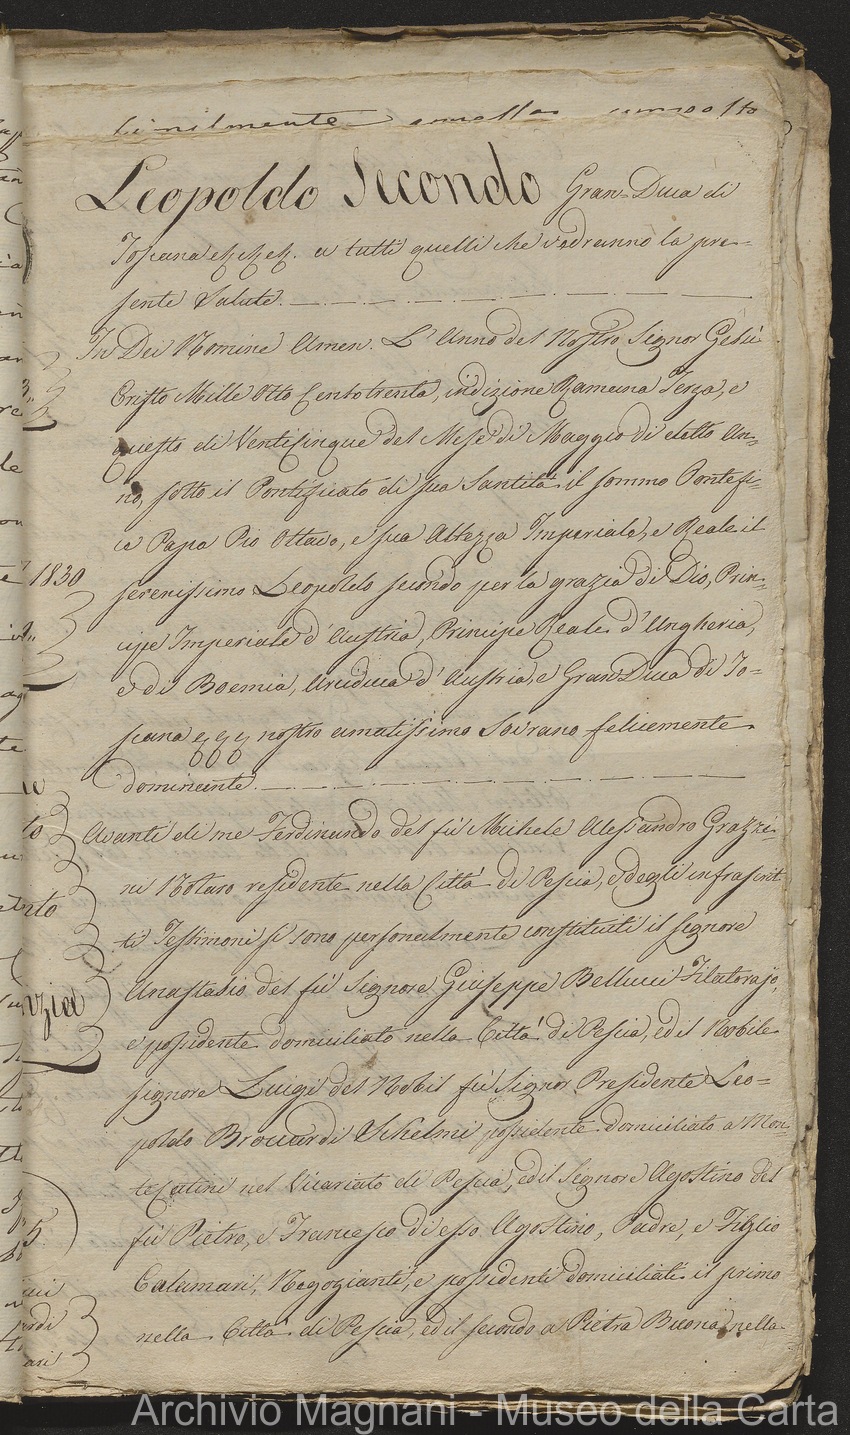 Leopoldo Secondo Gran=Duca di
Toscana &c. &c. &c. a tutti quelli che vedranno la pre=
sente Salute.
In Dei Nomine Amen. L'Anno del Nostro Signor Gesù
Cristo Mille Otto Centotrenta, indizione Romana Terza, e
questo di Venticinque del Mese di Maggio di detto An=
no, sotto il Pontificato di sua Santità il sommo Pontefi=
ce Papa Pio Ottavo, e sua Altezza Imperiale, e Reale il
1830
serenissimo Leopoldo secondo per la grazia di Dio, Prin=
cipe Imperiale d'Austria, Principe Reale d'Ungheria,
e di Boemia, Arciduca d'Austria, e Gran Duca di To=
scana &c &c &c nostro amatissimo Sovrano felicemente
dominante.
Avanti di me Ferdinando del fù Michele Alessandro Grazzi=
ni Notaro residente nella Città di Pescia, e degli infrascrit=
ti Testimoni si sono personalmente constituiti il signore
Anastasio del fù Signore Giuseppe Bellucci Filatorajo,
e possidente domiciliato nella Città di Pescia, ed il Nobile
signore Luigi del Nobil fù Signor Presidente Leo=
poldo Brouardi Schelmi possidente domiciliato a Mon=
teCatini nel Vicariato di Pescia, ed il Signore Agostino del
fù Pietro, e Francesco di esso Agostino, Padre, e Figlio
Calamari, Negozianti, e possidenti domiciliati il primo
nella Città di Pescia, ed il secondo a Pietra Buona nella
Archivio Magnani - Museo della Carta